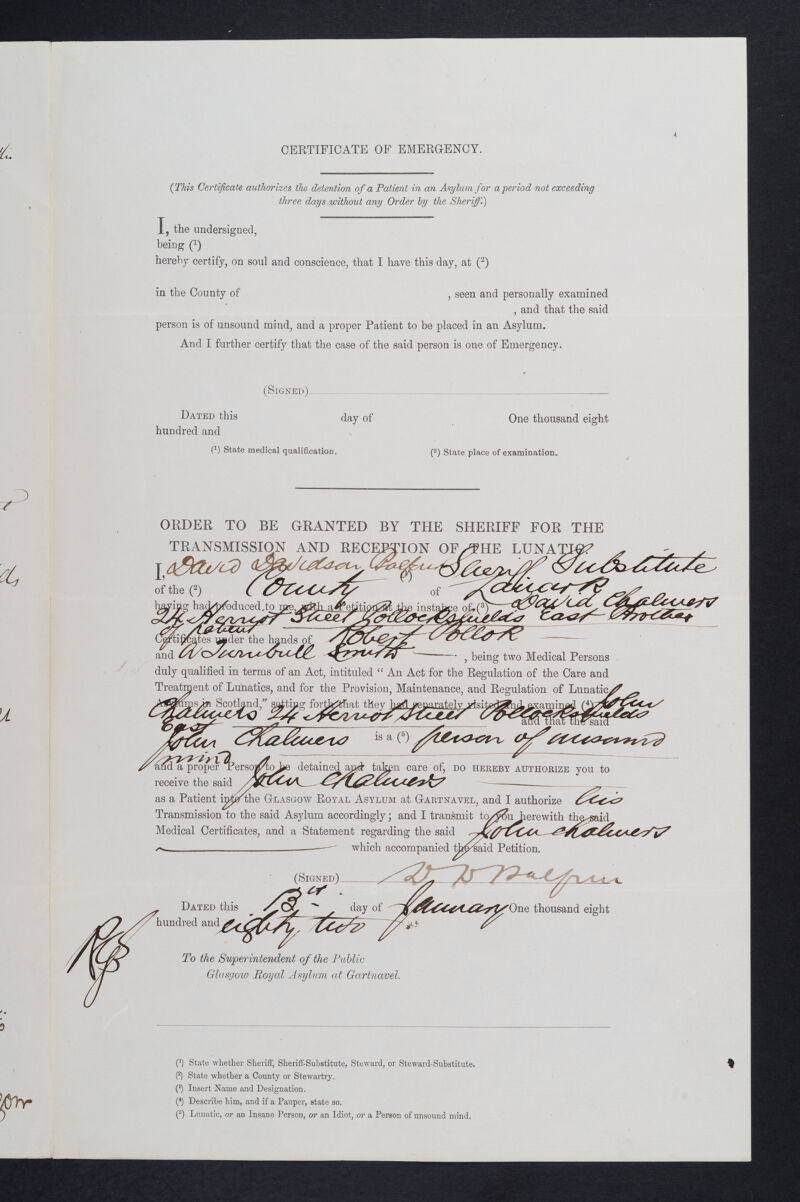 CERTIFICATE OF EMERGENCY.
(This Certificate authorizes the detention of a Patient in an Asylum for a period not exceeding
three days without any Order by the Sheriff.)
I, the undersigned,
being (1)
hereby certify, on soul and conscience, that I have this day, at (2)
in the County of , seen and personally examined
, and that the said
person is of unsound mind, and a proper Patient to be placed in an Asylum.
And I further certify that the case of the said person is one of Emergency.
(SIGNED)
DATED this day of One thousand eight
hundred and
(1) State medical qualification. (2) State place of examination.
ORDER TO BE GRANTED BY THE SHERIFF FOR THE
TRANSMISSION AND RECEPTION OF THE LUNATIC.
I, David Davidson Balfour (1) Sheriff Substitute
of the (2) County of Lanark
having had produced to me, with a Petition at the instance of (3) David Chalmers
24 Herriot Street Pollockshields East Brother
of Patient
Certificates under the hands of Robert Pollok
and W Turnbull Smith , being two Medical Persons
duly qualified in terms of an Act, intituled “ An Act for the Regulation of the Care and
Treatment of Lunatics, and for the Provision, Maintenance, and Regulation of Lunatic
Asylums in Scotland,” setting forth that they had separately visited and examined (4) John
Chalmers 24 Herriot Street Pollockshields
East and that the said
John Chalmers is a (5) person of unsound
mind
and a proper Person to be detained and taken care of, DO HEREBY AUTHORIZE you to
receive the said John Chalmers
as a Patient into the GLASGOW ROYAL ASYLUM AT GARTNAVEL, and I authorize his
Transmission to the said Asylum accordingly; and I transmit to you herewith the said
Medical Certificates, and a Statement regarding the said John Chalmers
which accompanied the said Petition.
(SIGNED) D D Balfour
DATED this 13th day of January One thousand eight
hundred and eighty two
To the Superintendent of the Public
Glasgow Royal Asylum at Gartnavel.
(1) State whether Sheriff, Sheriff-Substitute, Steward, or Steward-Substitute.
(2) State whether a County or Stewartry.
(3) Insert Name and Designation.
(4) Describe him, and if a Pauper, state so.
(5) Lunatic, or an Insane Person, or an Idiot, or a Person of unsound mind.